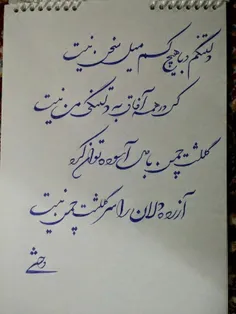 دلتنگم و با هیچ کسم میل سخن نیست
کس در همه آفاق به دلتنگی من نیست
گلگشت چمن با دل آسوده توان کرد
آزرده دلان را سر گلگشت چمن نیست
وحشی